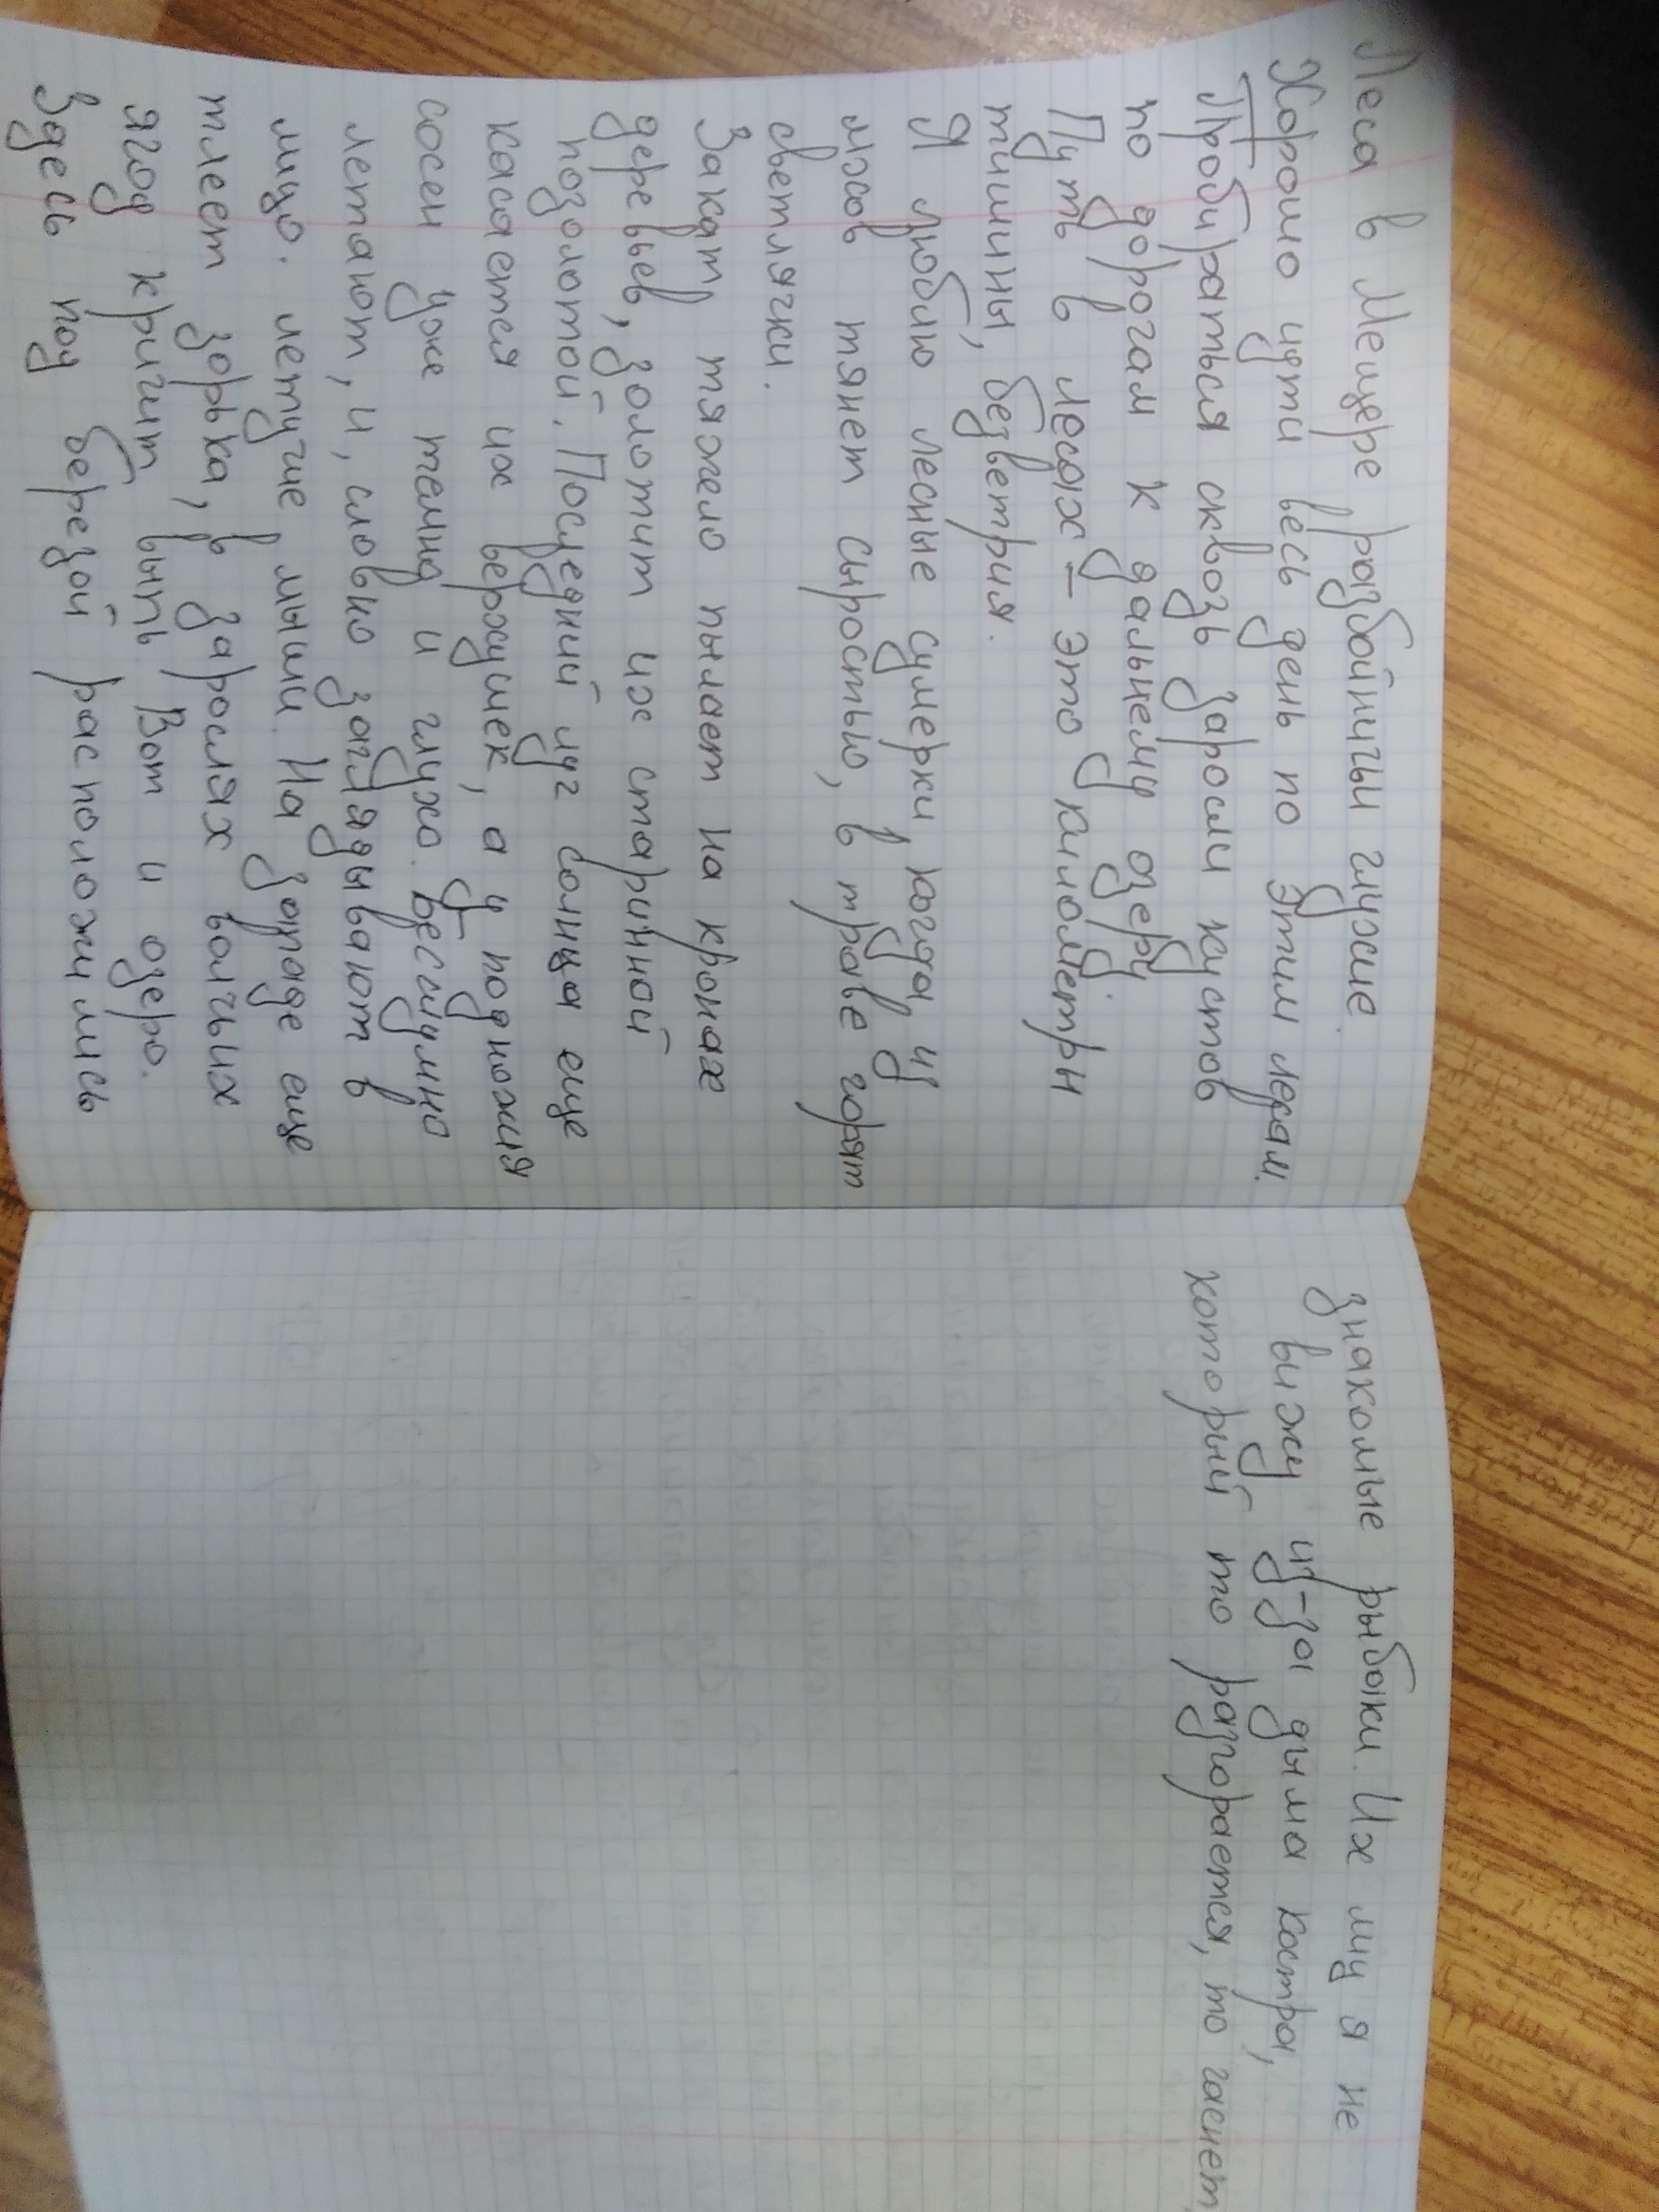 Леса в Мещере разбойничьи глухие.
Хорошо идти весь день по этим лесам.
Пробираться сквозь заросли кустов
по дорогам к дальнему озеру.
Путь в лесах – это километры
тишины, безветрия.
Я люблю лесные сумерки, когда из
мхов тянет сыростью, в траве горят
светлячки.
Закат тяжело пылает на кронах
деревьев, золотит их старинной
позолотой. Последний луг солнца еще
касается их верхушек, а у подножия
сосен уже темно и глухо. Бесшумно
летают, и, словно заглядывают в
лицо. летучие мыши. На западе еще
тлеет зорька, в зарослях волчьих
ягод кричит выпь. Вот и озеро.
Здесь под березой расположились
знакомые рыбаки. Их лиц я не
вижу из-за дыма костра,
который то разгорается, то гаснет